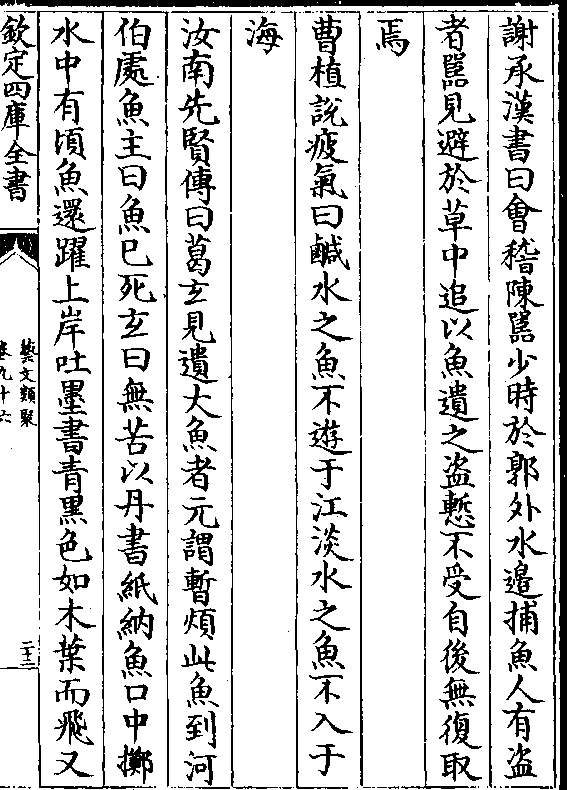 謝承漢書曰會稽陳嚚少時於郭外水邉捕魚人有盜
者嚚見避於草中追以魚遺之盜慙不受自後無復取
焉
曹植說疫氣曰鹹水之魚不遊于江淡水之魚不入于
海
汝南先賢傳曰葛玄見遺大魚者元謂暫煩此魚到河
伯處魚主曰魚已死玄曰無苦以丹書紙納魚口中擲
水中有頃魚還躍上岸吐墨書青黑色如木葉而飛又
欽定四庫全書
藝文類聚
卷九十六
二十二